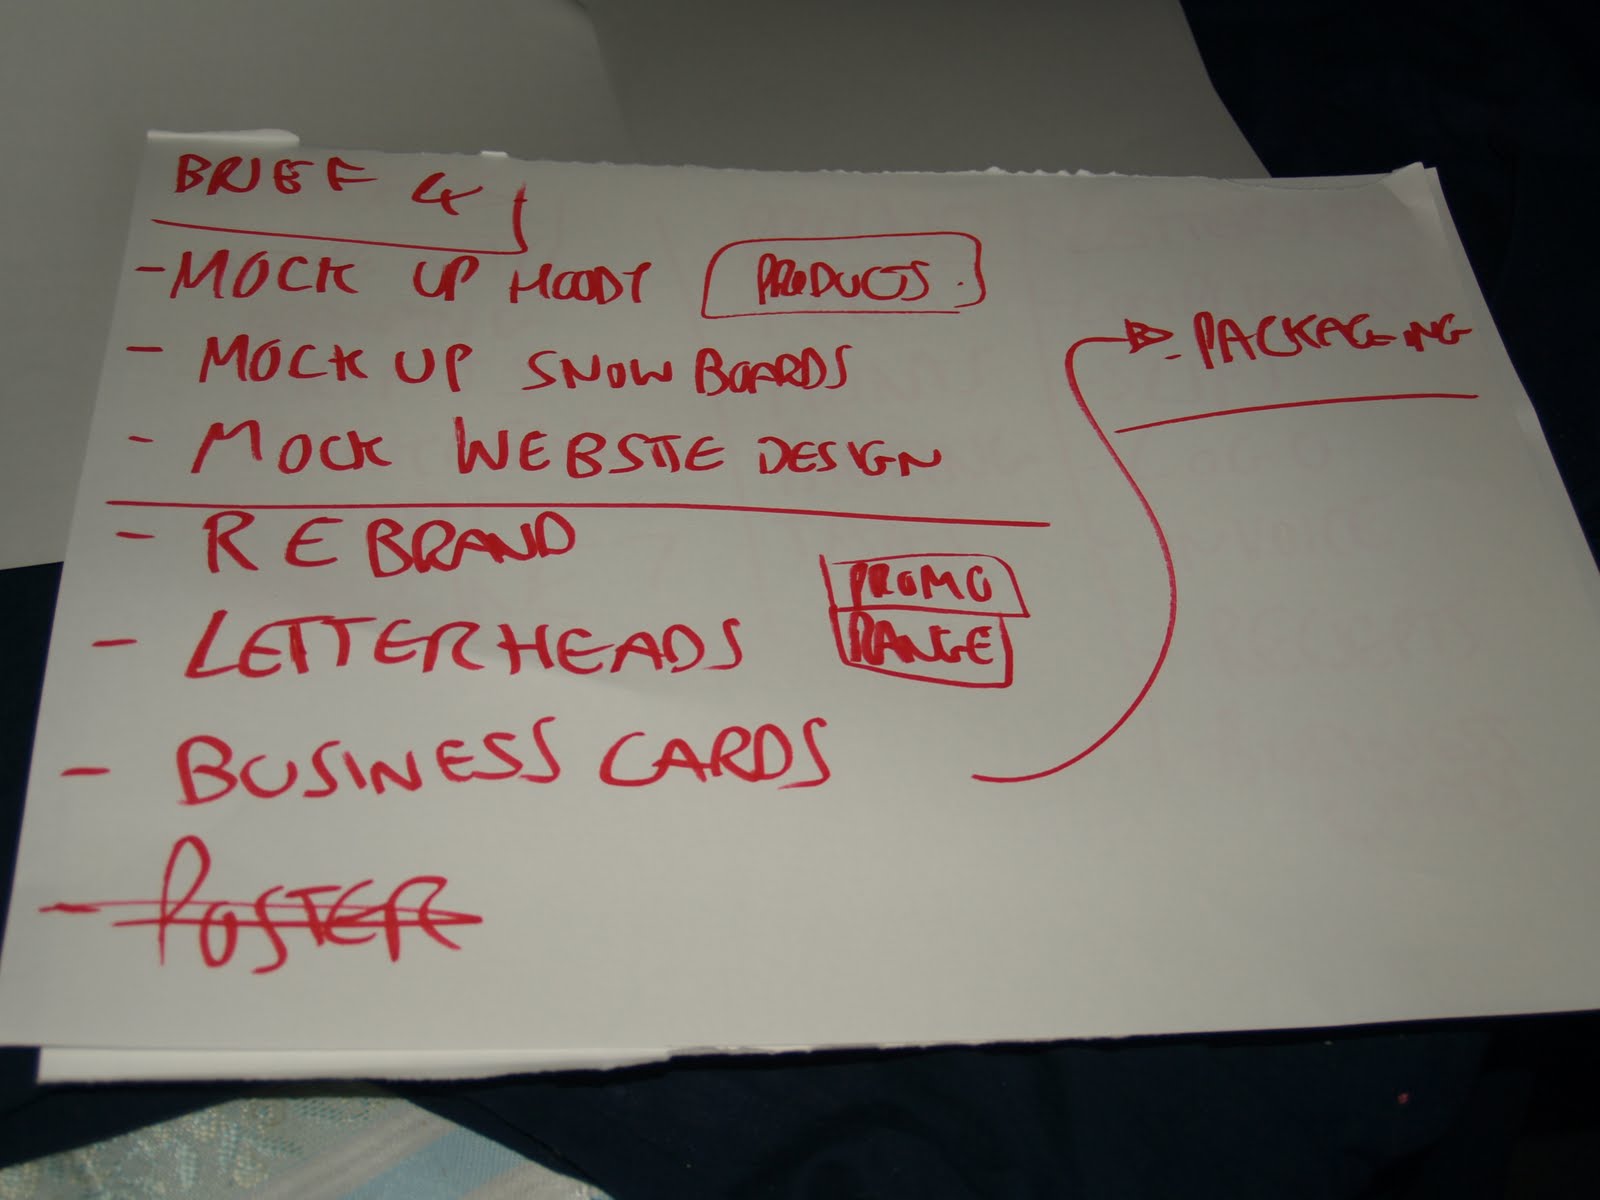 BRIEF 4
- MOCK UP HOODY PRODUCTS.
- MOCK UP SNOW BOARDS
- PACKAGING
- MOCK WEBSITE DESIGN
- REBRAND
PROMO
- LETTERHEADS
RANGE
- BUSINESS CARDS
- POSTER